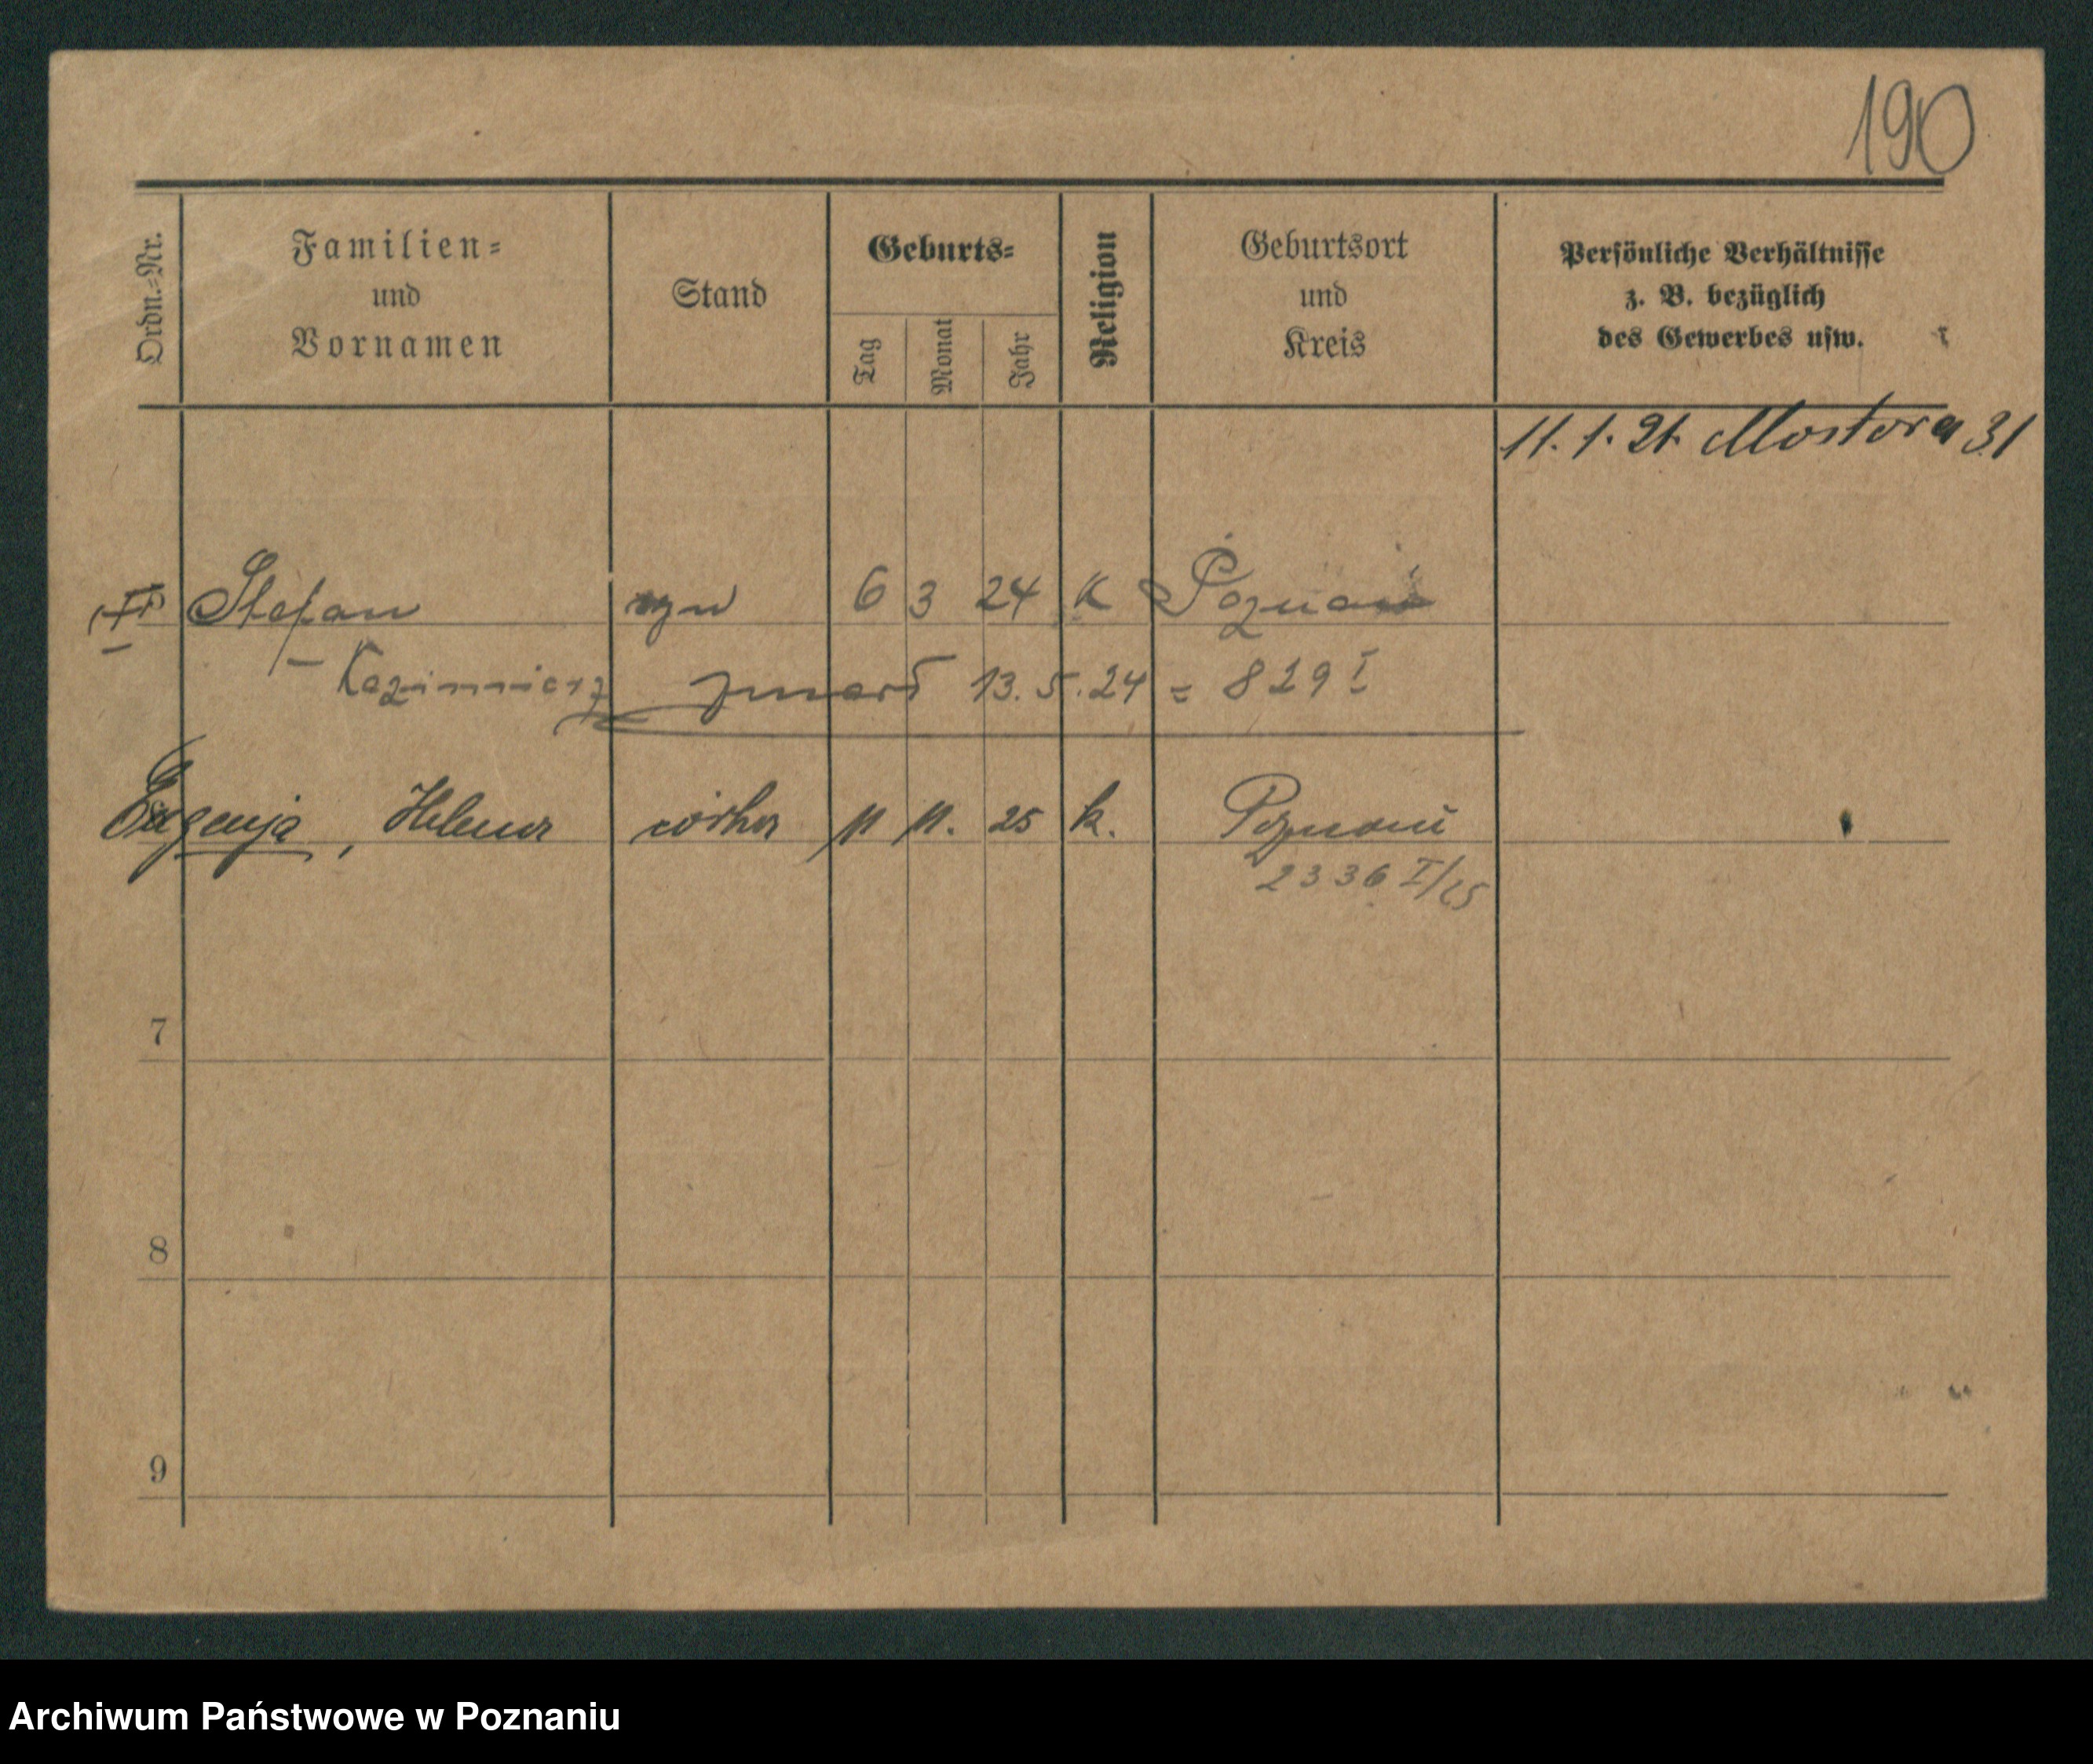 190
Ordn.=Nr.
Familien=
und
Vornamen
Stand
Geburts=
Tag
Monat
Jahr
Religion
Geburtsort
und
Kreis
Persönliche Verhältnisse
z. B. bezüglich
des Gewerbes usw.
11. 1. 21. Mostowa 31
Stefan syn 6 3 24 K Poznań
– Kazimierz zmarł 13.5.24 = 829 I
Eugenja, Helena córka 11 11. 25 k. Poznań
2336 I/25
7
8
9
Archiwum Państwowe w Poznaniu